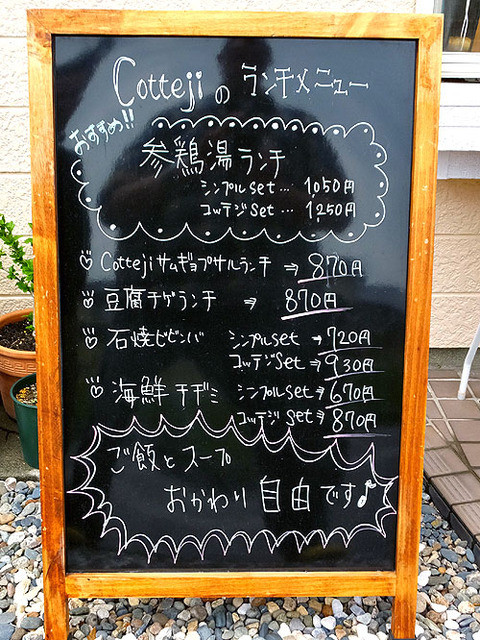 Cottejiの ランチメニュー
おすすめ!!
参鶏湯ランチ
シンプルset… 1,050円
コッテジSet … 1,250円
Cottejiサムギョプサルランチ ⇒ 870円
豆腐チゲランチ ⇒ 870円
石焼ビビンバ シンプルset → 720円
コッテジSet⇒ 930円
海鮮チヂミ シンプルset⇒ 670円
コッテジset⇒ 870円
ご飯とスープ
おかわり自由です♪